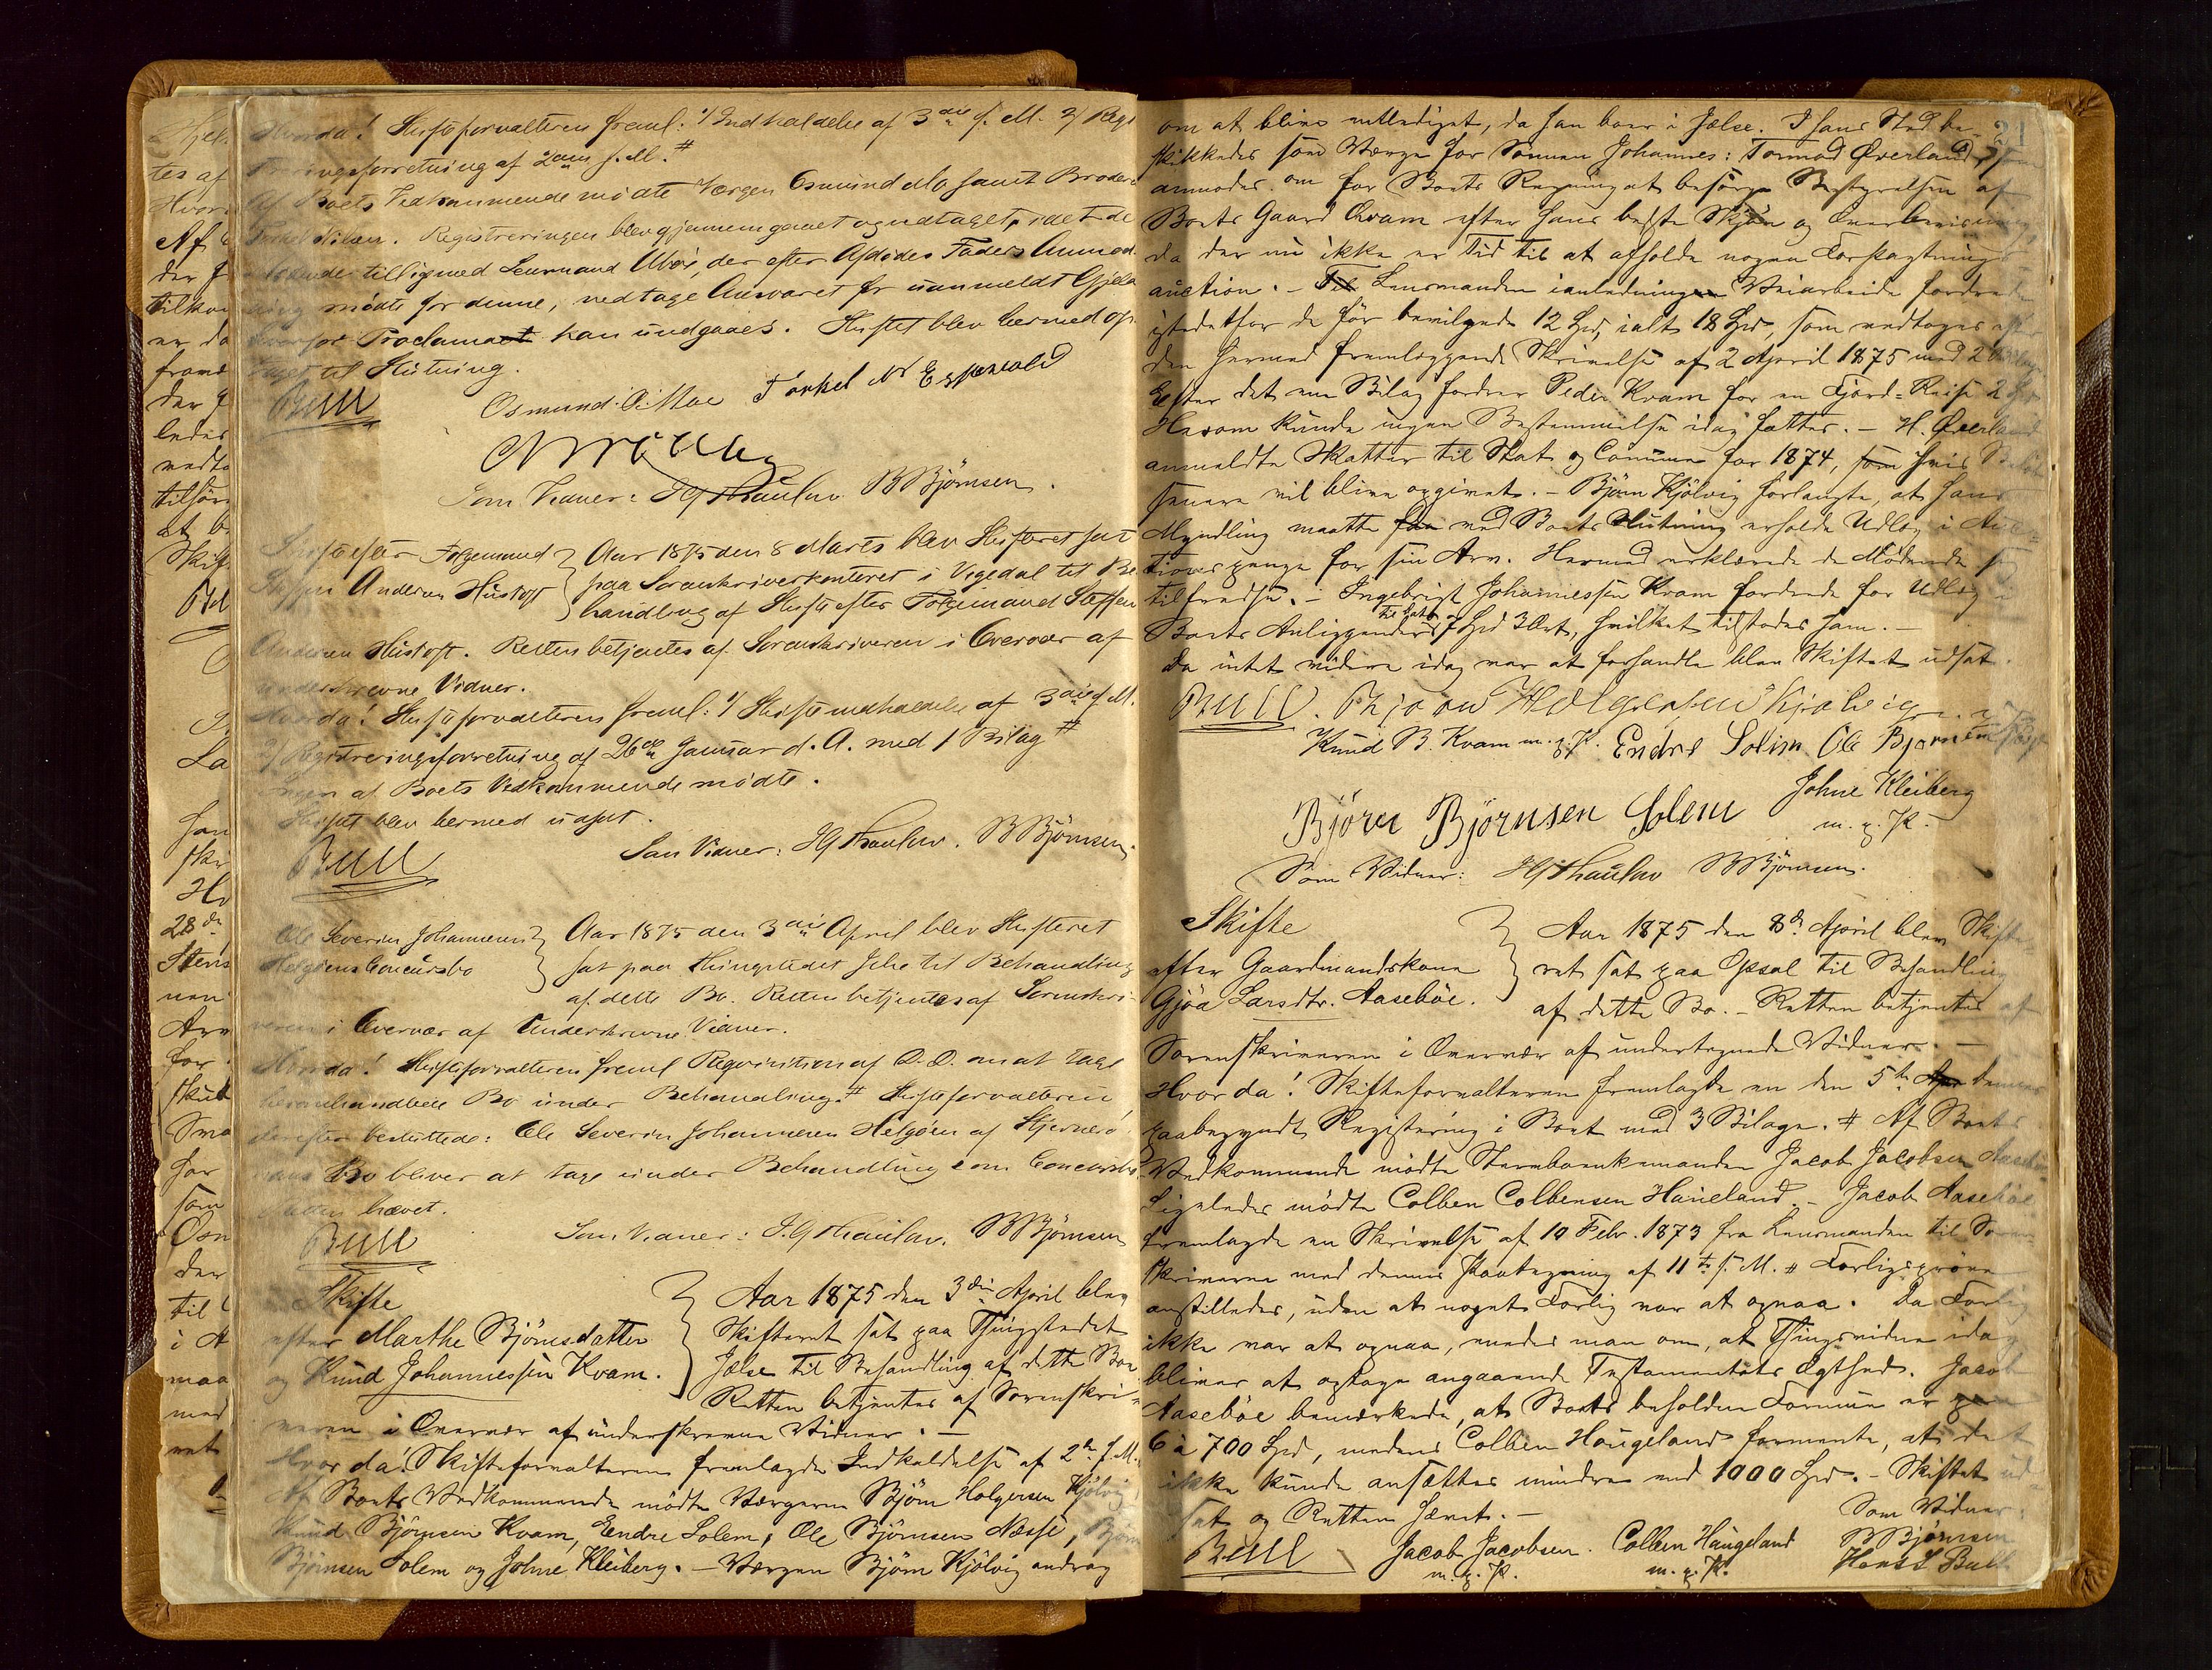 Hvorda! Skifteforvalteren freml: 1/ Indkaldelse af 3die f. M. 2/ Regi
streringsforretning af 2den f. M. #
Af Boets Vedkommende mødte Værgen Osmund Mo samt Broderen
Torkel Nilsen. Registreringen blev gjennemgaaet og vedtaget, idet de
Mødende tilligemed Lensmand Ubøe, der efter Afdødes Faders Anmod
ning mødte for denne, vedtage Ansvaret for uanmeldt Gjeld
hvorfor Proclama kan undgaaes. Skiftet blev hermed op
taget til Slutning.
Bull Osmund. O. Moe Torkel N Espevold
Som Vidner: H G Thaulow B Bjørnsen.
Skifte efter Folgemand
Steffen Andersen Hustoft
Aar 1875 den 8 Marts blev Skifteret sat
paa Sorenskriverkontoret i Vigedal til Be
handling af Skifte efter Folgemand Steffen
Andersen Hustoft. Retten betjentes af Sorenskriveren i Overvær af
underskrevne Vidner.
Hvorda! Skifteforvalteren freml: 1/ Skifteindkaldelse af 3die f. M.
2/ Registreringsforretning af 26de Januar d. A. med 1 Bilag #
Ingen af Boets Vedkommende mødte.
Skiftet blev hermed udsat.
Bull Som Vidner: H G Thaulow. B Bjørnsen
Ole Severin Johannesen
Helgøens Concursbo
Aar 1875 den 3die April blev Skifteret
sat paa Thingstedet Jelse til Behandling
af dette Bo. Retten betjentes af Sorenskri-
veren i Overvær af Underskrevne Vidner.
Hvorda! Skifteforvalteren freml Reqvisition af D. D. om at tage
heromhandlede Bo under Behandling. # Skifteforvalteren
derefter besluttede: Ole Severin Johannesen Helgøen af Hjerne
Bo bliver at tage under Behandling som Concursbo
Retten hævet.
Bull Som Vidner: H. G Thaulow. B Bjørnsen
Skifte
efter Marthe Bjørnsdatter
og Knud Johannessen Kvam.
Aar 1875 den 3die April blev
Skifteret sat paa Thingstedet
Jelse til Behandling af dette Bo
Retten betjentes af Sorenskri-
veren i Overvær af underskrevne Vidner. —
Hvor da! Skifteforvalteren fremlagde Indkaldelse af 2den f. M.
Af Boets Vedkommende mødte Værgerne Bjørn Holgersen Kjølvig,
Knud Bjørnsen Kvam, Endre Solem, Ole Bjørnsen Næsse, Bjørn
Bjørnsen Solem og Johne Kleiberg. — Værgen Bjørn Kjølvig androg
21
om at blive entlediget, da han boer i Jelse. I hans Sted be-
skikkedes som Værge for Sønnen Johannes: Tormod Øverland, som
anmodes om for Boets Regning at besørge Bestyrelsen af
Boets Gaard Kvam efter hans bedste Skjøn og Overbevisning,
da der nu ikke er Tid til at afholde nogen Forpagtnings
auction. — Lensmanden ianledning Veiarbeide fordrede
istedetfor de før bevilgede 12 Spd, ialt 18 Spd, som vedtoges efter
den hermed fremlæggende Skrivelse af 2 April 1875 med 2 Bilage
Efter det ene Bilag fordrer Peder Kvam for en Fjord-Reise 2 Spd
Herom kunde ingen Bestemmelse idag fattes. — H. Øverland
anmeldte Skatter til Stat og Commune for 1874, som hvis Beløb
senere vil blive opgivet. — Bjørn Kjølvig forlangte, at hans
Myndling maatte faa ved Boets Slutning erholde Udlæg i Auc-
tionspenge for sin Arv. Hermed erklærede de Mødende sig
tilfredse. — Ingebrigt Johannessen Kvam fordrede for Udlæg i
Boets Anliggender til Dato 7 Spd 3 Ort, hvilket tilstodes ham. —
Da intet videre idag var at forhandle blev Skiftet udsat.
Bull. Bjørn Holgersen Kjølvig
Knud B. Kvam m. p. P. Endre Solim Ole Bjørnsen
Björn Björnsen Solem Johne Kleiberg
m. p. P.
Som Vidner: H G Thaulow B Bjørnsen.
Skifte
efter Gaardmandskone
Gjøa Larsdtr. Aasebøe.
Aar 1875 den 8de April blev Skifte
ret sat paa Opsal til Behandling
af dette Bo. — Retten betjentes af
Sorenskriveren i Overvær af undertegnede Vidner. —
Hvor da! Skifteforvalteren fremlagde en den 5te dennes
paabegyndt Registering i Boet med 3 Bilage. # Af Boets
Vedkommende mødte Stervboenkemanden Jacob Jacobsen Aasebøe
Ligeledes mødte Colben Colbensen Haugeland. — Jacob Aasebøe
fremlagde en Skrivelse af 10 Febr. 1873 fra Lensmanden til Soren
skriveren med dennes Paategning af 11te s. M. # Forligsprøve
anstilledes, uden at noget Forlig var at opnaa. Da Forlig
ikke var at opnaa, enedes man om, at Thingsvidne idag
bliver at optage angaaende Testamentets Ægthed. Jacob
Aasebøe bemærkede, at Boets beholdne Formue er
6 à 700 Spd, medens Colben Haugeland formente, at det
ikke kunde ansættes mindre end 1000 Spd. — Skiftet ud
sat og Retten hævet. — Som Vidner:
Bull Jacob Jacobsen. Colben Haugeland B Bjørnsen
m. p. P. m. p. P. Hans L Bull